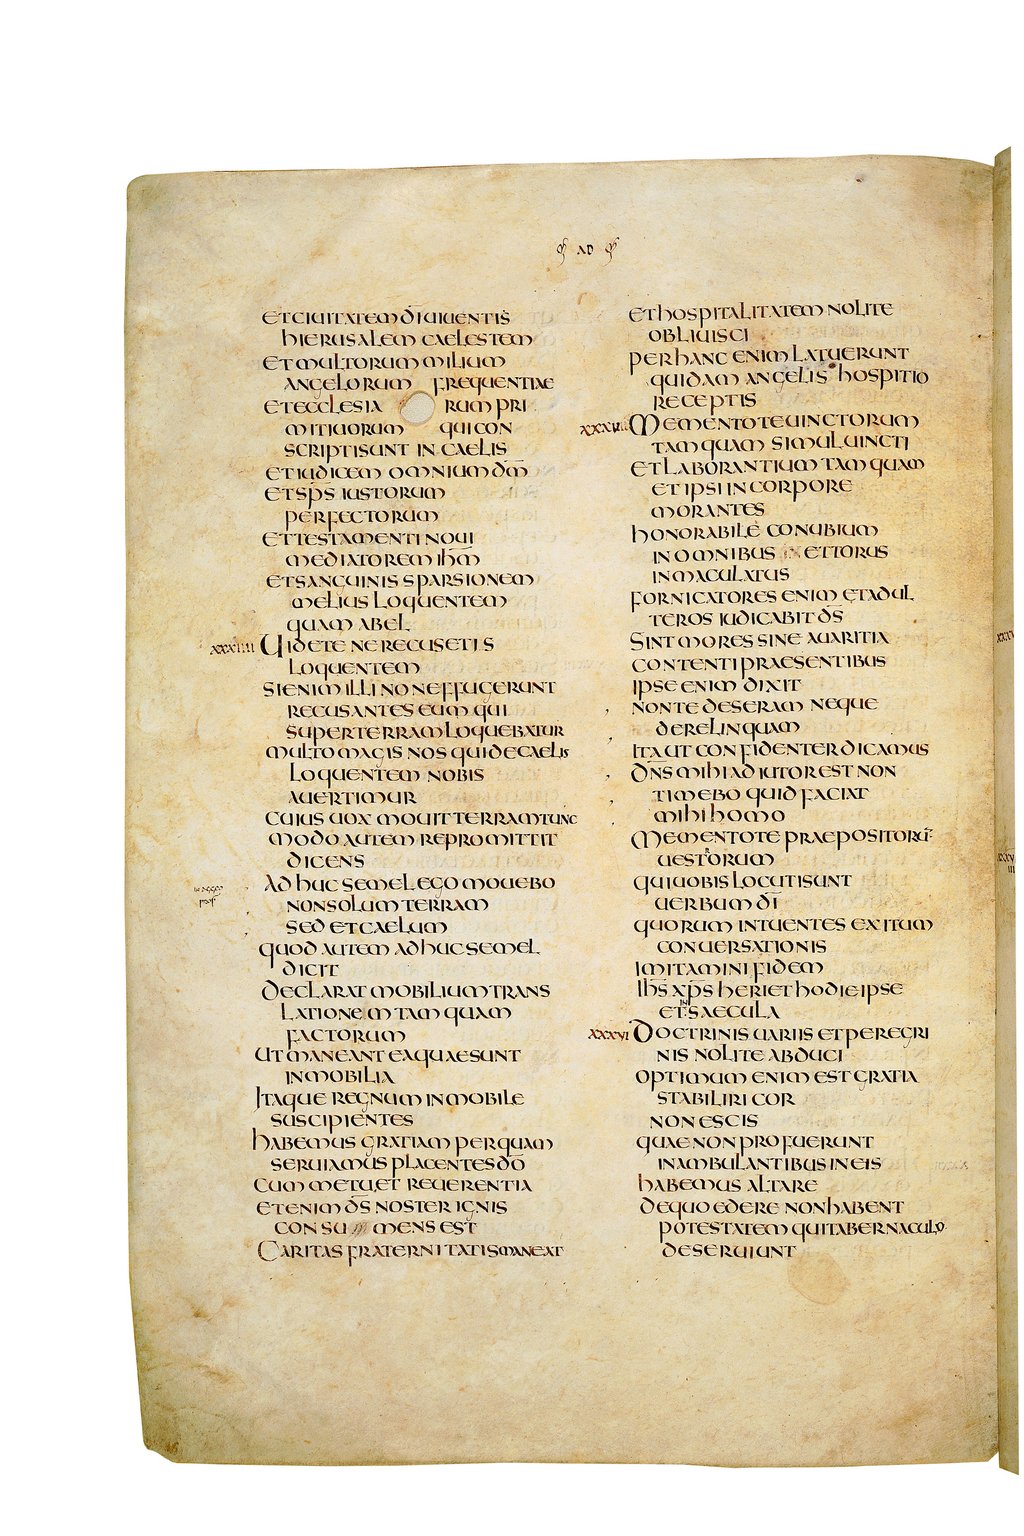 AD
ET CIUITATEM DI UIUENTIS
HIERUSALEM CAELESTEM
ET MULTORUM MILIUM
ANGELORUM FREQUENTIAE
ET ECCLESIA RUM PRI
MITIUORUM QUI CON
SCRIPTI SUNT IN CAELIS
ET IUDICEM OMNIUM DM̅
ET SP̅S IUSTORUM
PERFECTORUM
ET TESTAMENTI NOUI
MEDIATOREM IHM̅
ET SANGUINIS SPARSIONEM
MELIUS LOQUENTEM
QUAM ABEL
XXXIIII UIDETE NE RECUSETIS
LOQUENTEM
SI ENIM ILLI NON EFFUGERUNT
RECUSANTES EUM QUI
SUPER TERRAM LOQUEBATUR
MULTO MAGIS NOS QUI DE CAELIS
LOQUENTEM NOBIS
AUERTIMUR
CUIUS UOX MOUIT TERRAM TUNC
MODO AUTEM REPROMITTIT
DICENS
AD HUC SEMEL EGO MOUEBO
NON SOLUM TERRAM
SED ET CAELUM
QUOD AUTEM AD HUC SEMEL
DICIT
DECLARAT MOBILIUM TRANS
LATIONEM TAMQUAM
FACTORUM
UT MANEANT EA QUAE SUNT
INMOBILIA
ITAQUE REGNUM INMOBILE
SUSCIPIENTES
HABEMUS GRATIAM PER QUAM
SERUIAMUS PLACENTES DO̅
CUM METU ET REUERENTIA
ETENIM DS̅ NOSTER IGNIS
CONSU MENS EST
CARITAS FRATERNITATIS MANEAT
ET HOSPITALITATEM NOLITE
OBLIUISCI
PER HANC ENIM LATUERUNT
QUIDAM ANGELIS HOSPITIO
RECEPTIS
MEMENTOTE UINCTORUM
TAMQUAM SIMUL UINCTI
ET LABORANTIUM TAMQUAM
ET IPSI IN CORPORE
MORANTES
HONORABILE CONUBIUM
IN OMNIBUS ET TORUS
INMACULATUS
FORNICATORES ENIM ET ADUL
TEROS IUDICABIT DS̅
SINT MORES SINE AUARITIA
CONTENTI PRAESENTIBUS
IPSE ENIM DIXIT
NON TE DESERAM NEQUE
DERELINQUAM
ITA UT CONFIDENTER DICAMUS
DNS̅ MIHI ADIUTOR EST NON
TIMEBO QUID FACIAT
MIHI HOMO
MEMENTOTE PRAEPOSITORU̅
UESTRORUM
QUI UOBIS LOCUTI SUNT
UERBUM DI̅
QUORUM INTUENTES EXITUM
CONUERSATIONIS
IMITAMINI FIDEM
IHS̅ XPS̅ HERI ET HODIE IPSE
ET IN SAECULA
XXXVI DOCTRINIS UARIIS ET PEREGRI
NIS NOLITE ABDUCI
OPTIMUM ENIM EST GRATIA
STABILIRI COR
NON ESCIS
QUAE NON PROFUERUNT
INAMBULANTIBUS IN EIS
HABEMUS ALTARE
DE QUO EDERE NON HABENT
POTESTATEM QUI TABERNACULO
DESERUIUNT